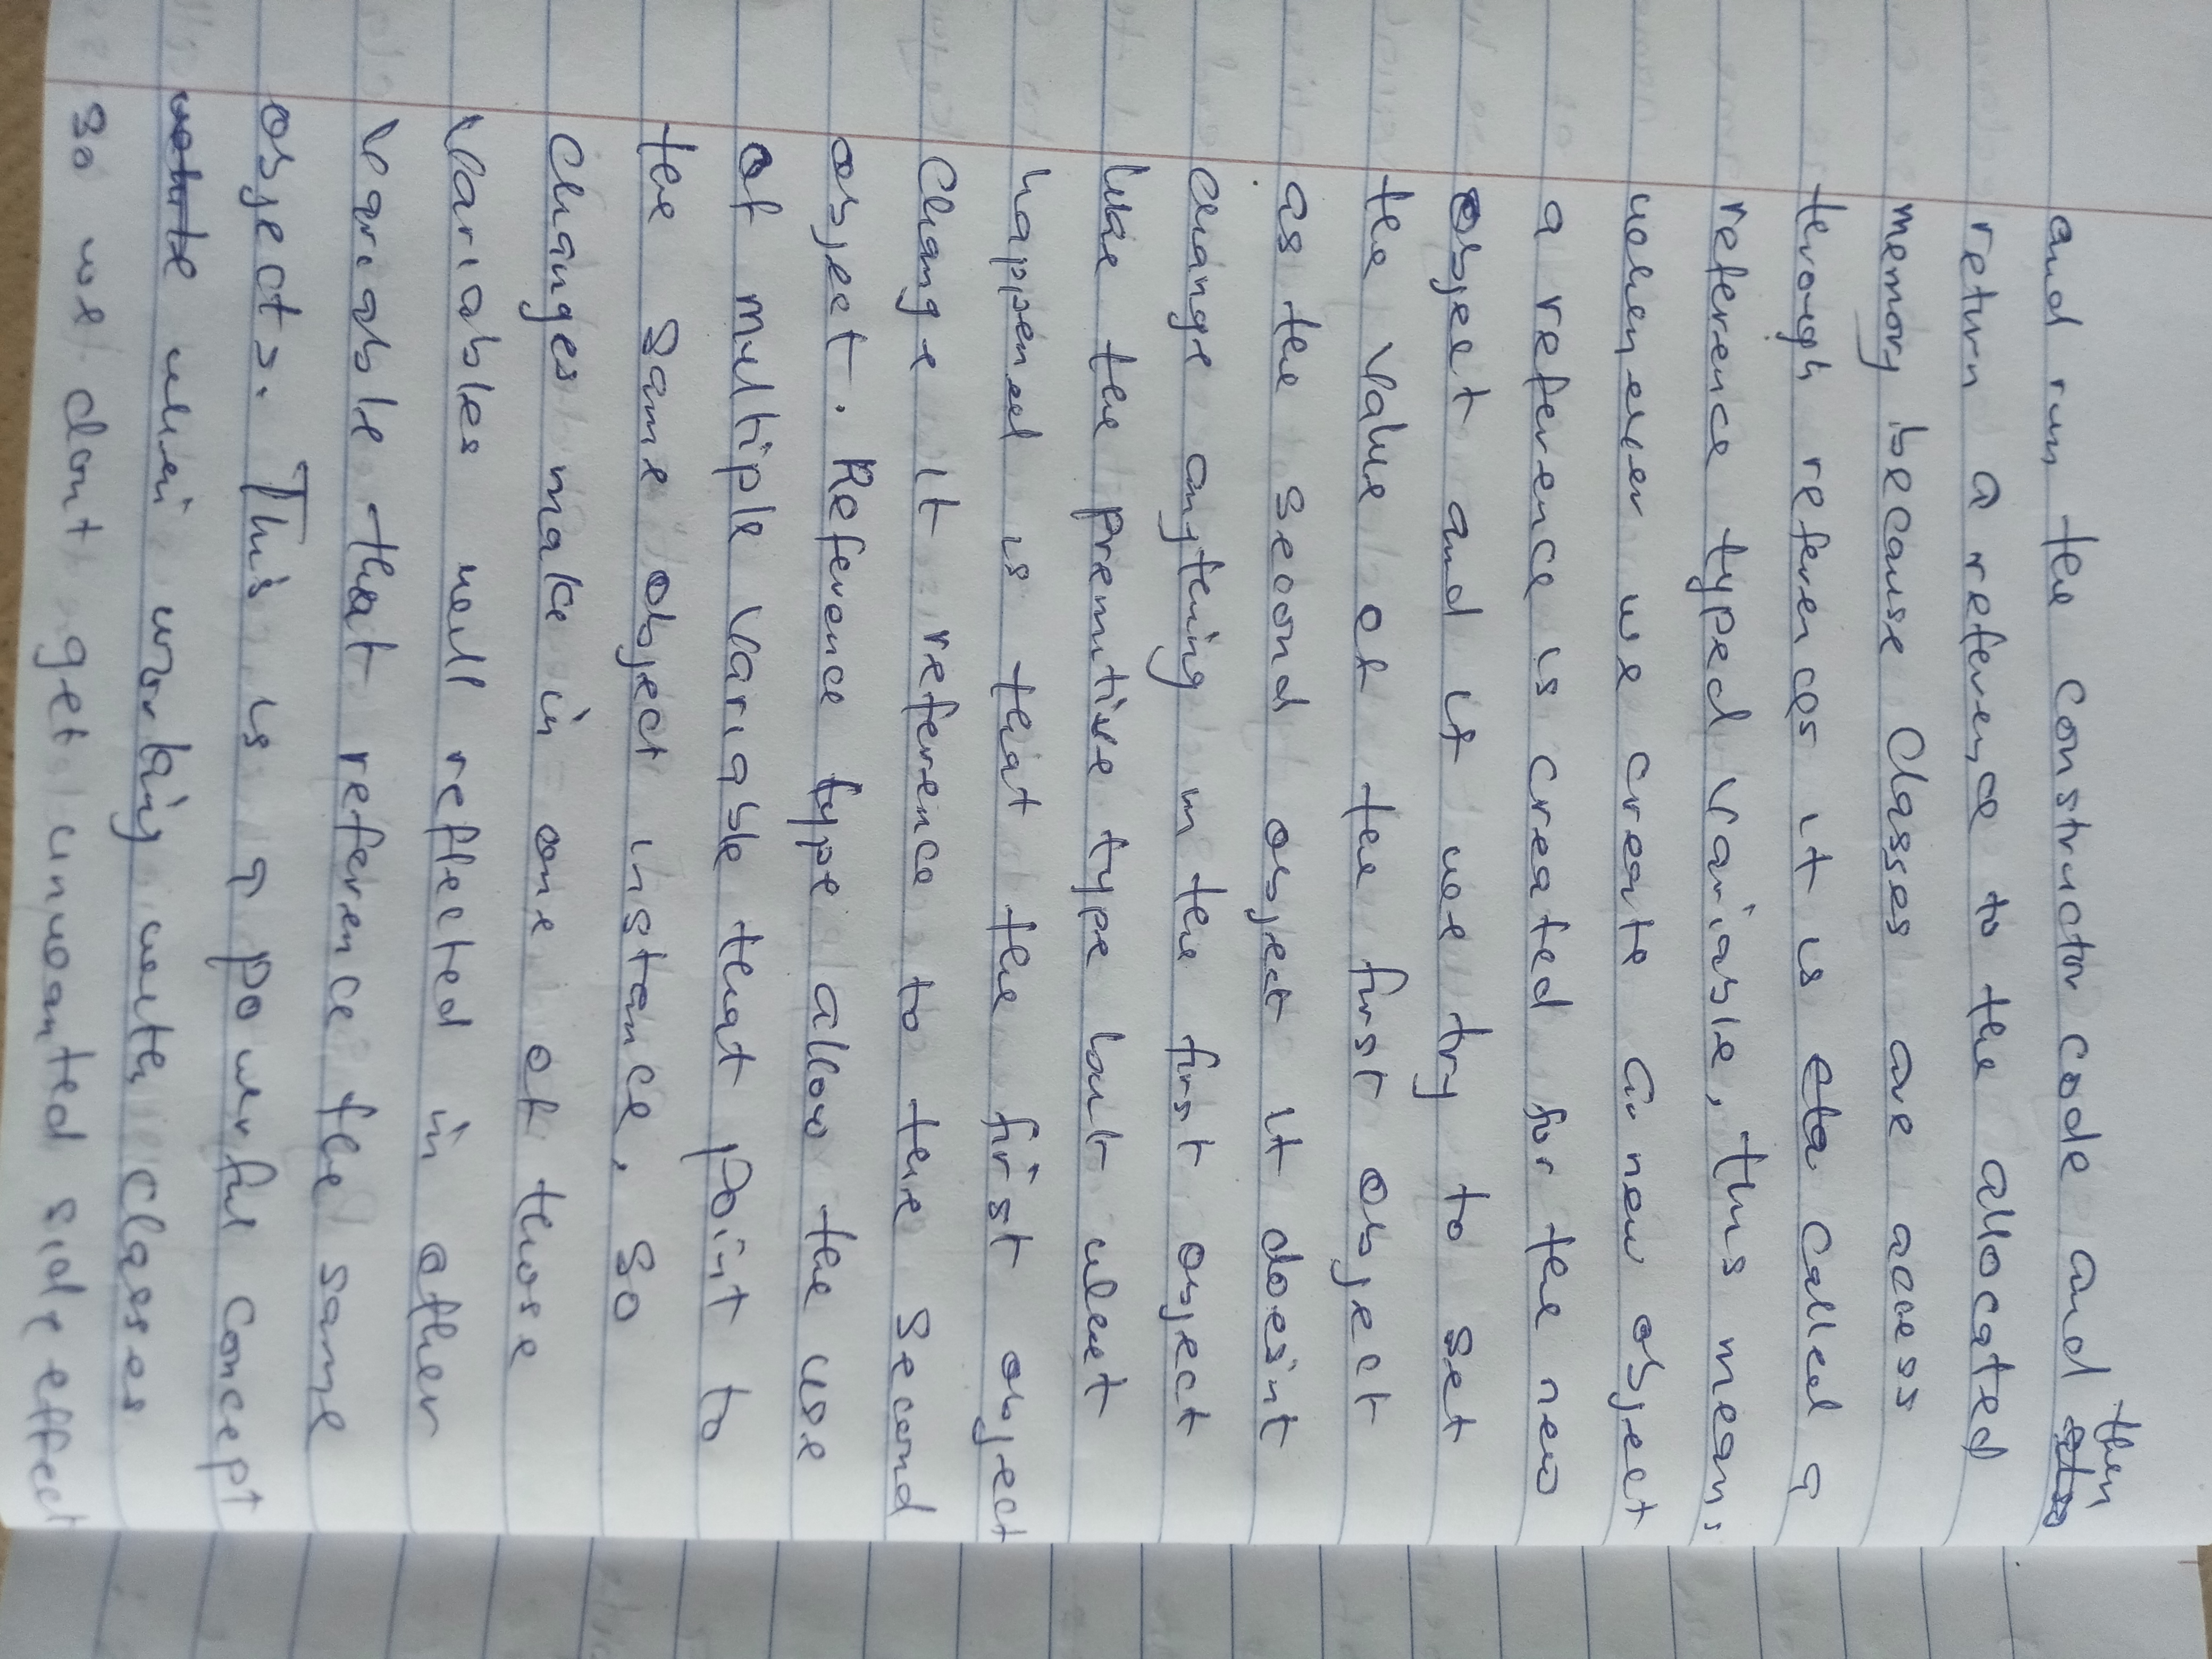 and run the constructor code and then
return a reference to the allocated
memory because classes are access
through references it is called a
reference typed variable, this means
whenever we create a new object
a reference is created for the new
object and if we try to set
the value of the first object
as the second object it doesint
change anything in the first object
like the premitive type but what
happened is that the first object
change it reference to the second
object. Reference type allow the use
of multiple variable that point to
the same object instance, so
changes make in one of those
variables will reflected in other
variable that reference the same
objects. This is a powerful concept
when working with classes
so we dont get unwanted side effect